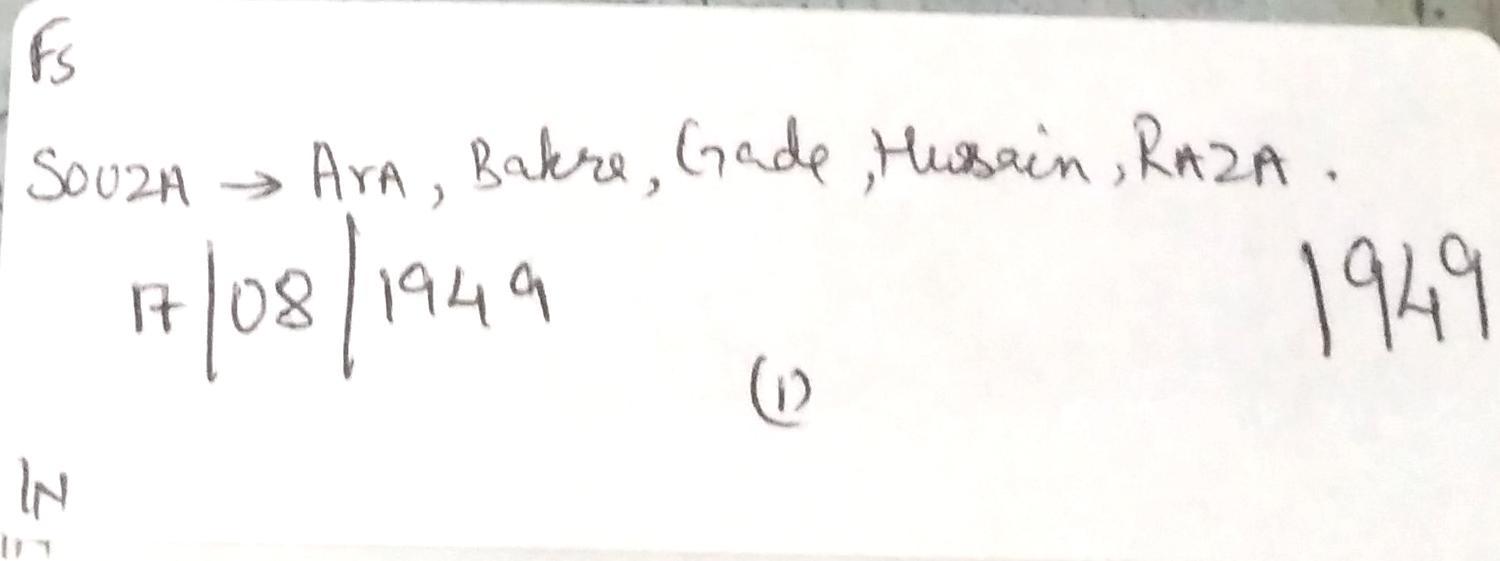 FS
SOUZA → ArA, Bakre, Gade, Hussain, RAZA.
17/08/1949 1949
(1)
IN